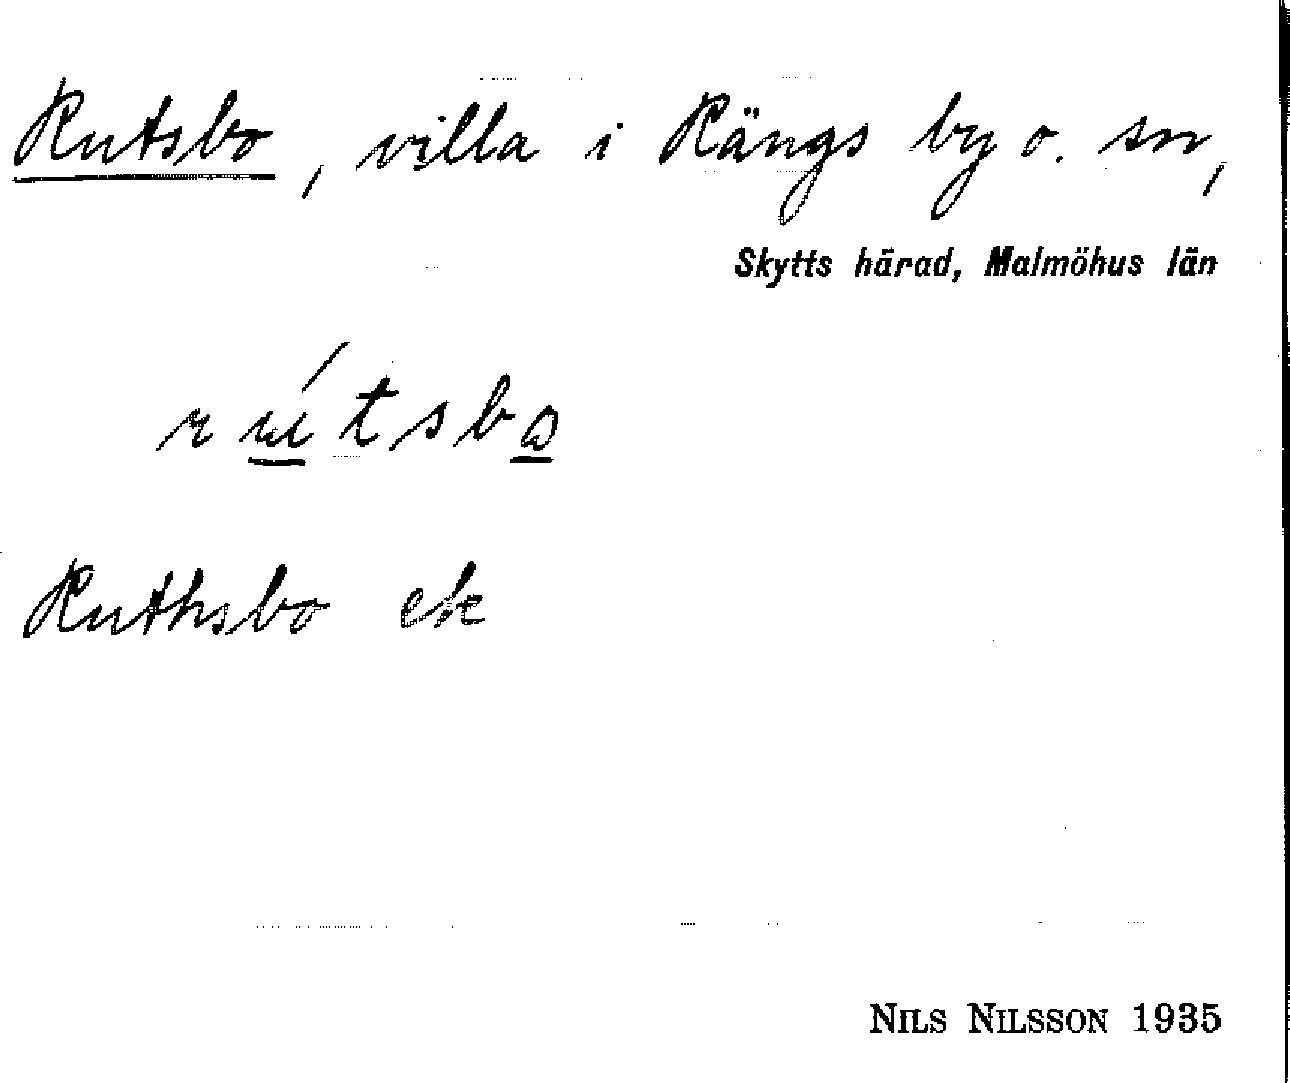 Rutsbo, villa i Rängs by o. sn,
Skytts härad, Malmöhus län
Ruthsbo ek
NILS NILSSON 1935